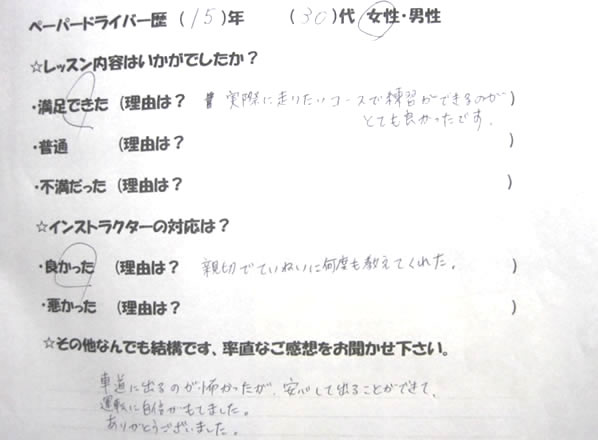 ペーパードライバー歴 (15)年 (30)代 女性・男性
☆レッスン内容はいかがでしたか？
・満足できた (理由は？ 実際に走りたいコースで練習ができるのが )
とても良かったです.
・普通 (理由は？ )
・不満だった (理由は？ )
☆インストラクターの対応は？
・良かった (理由は？ 親切でていねいに何度も教えてくれた。 )
・悪かった (理由は？ )
☆その他なんでも結構です、率直なご感想をお聞かせ下さい。
車道に出るのが怖かったが、安心して出ることができて、
運転に自信がもてました。
ありがとうございました。